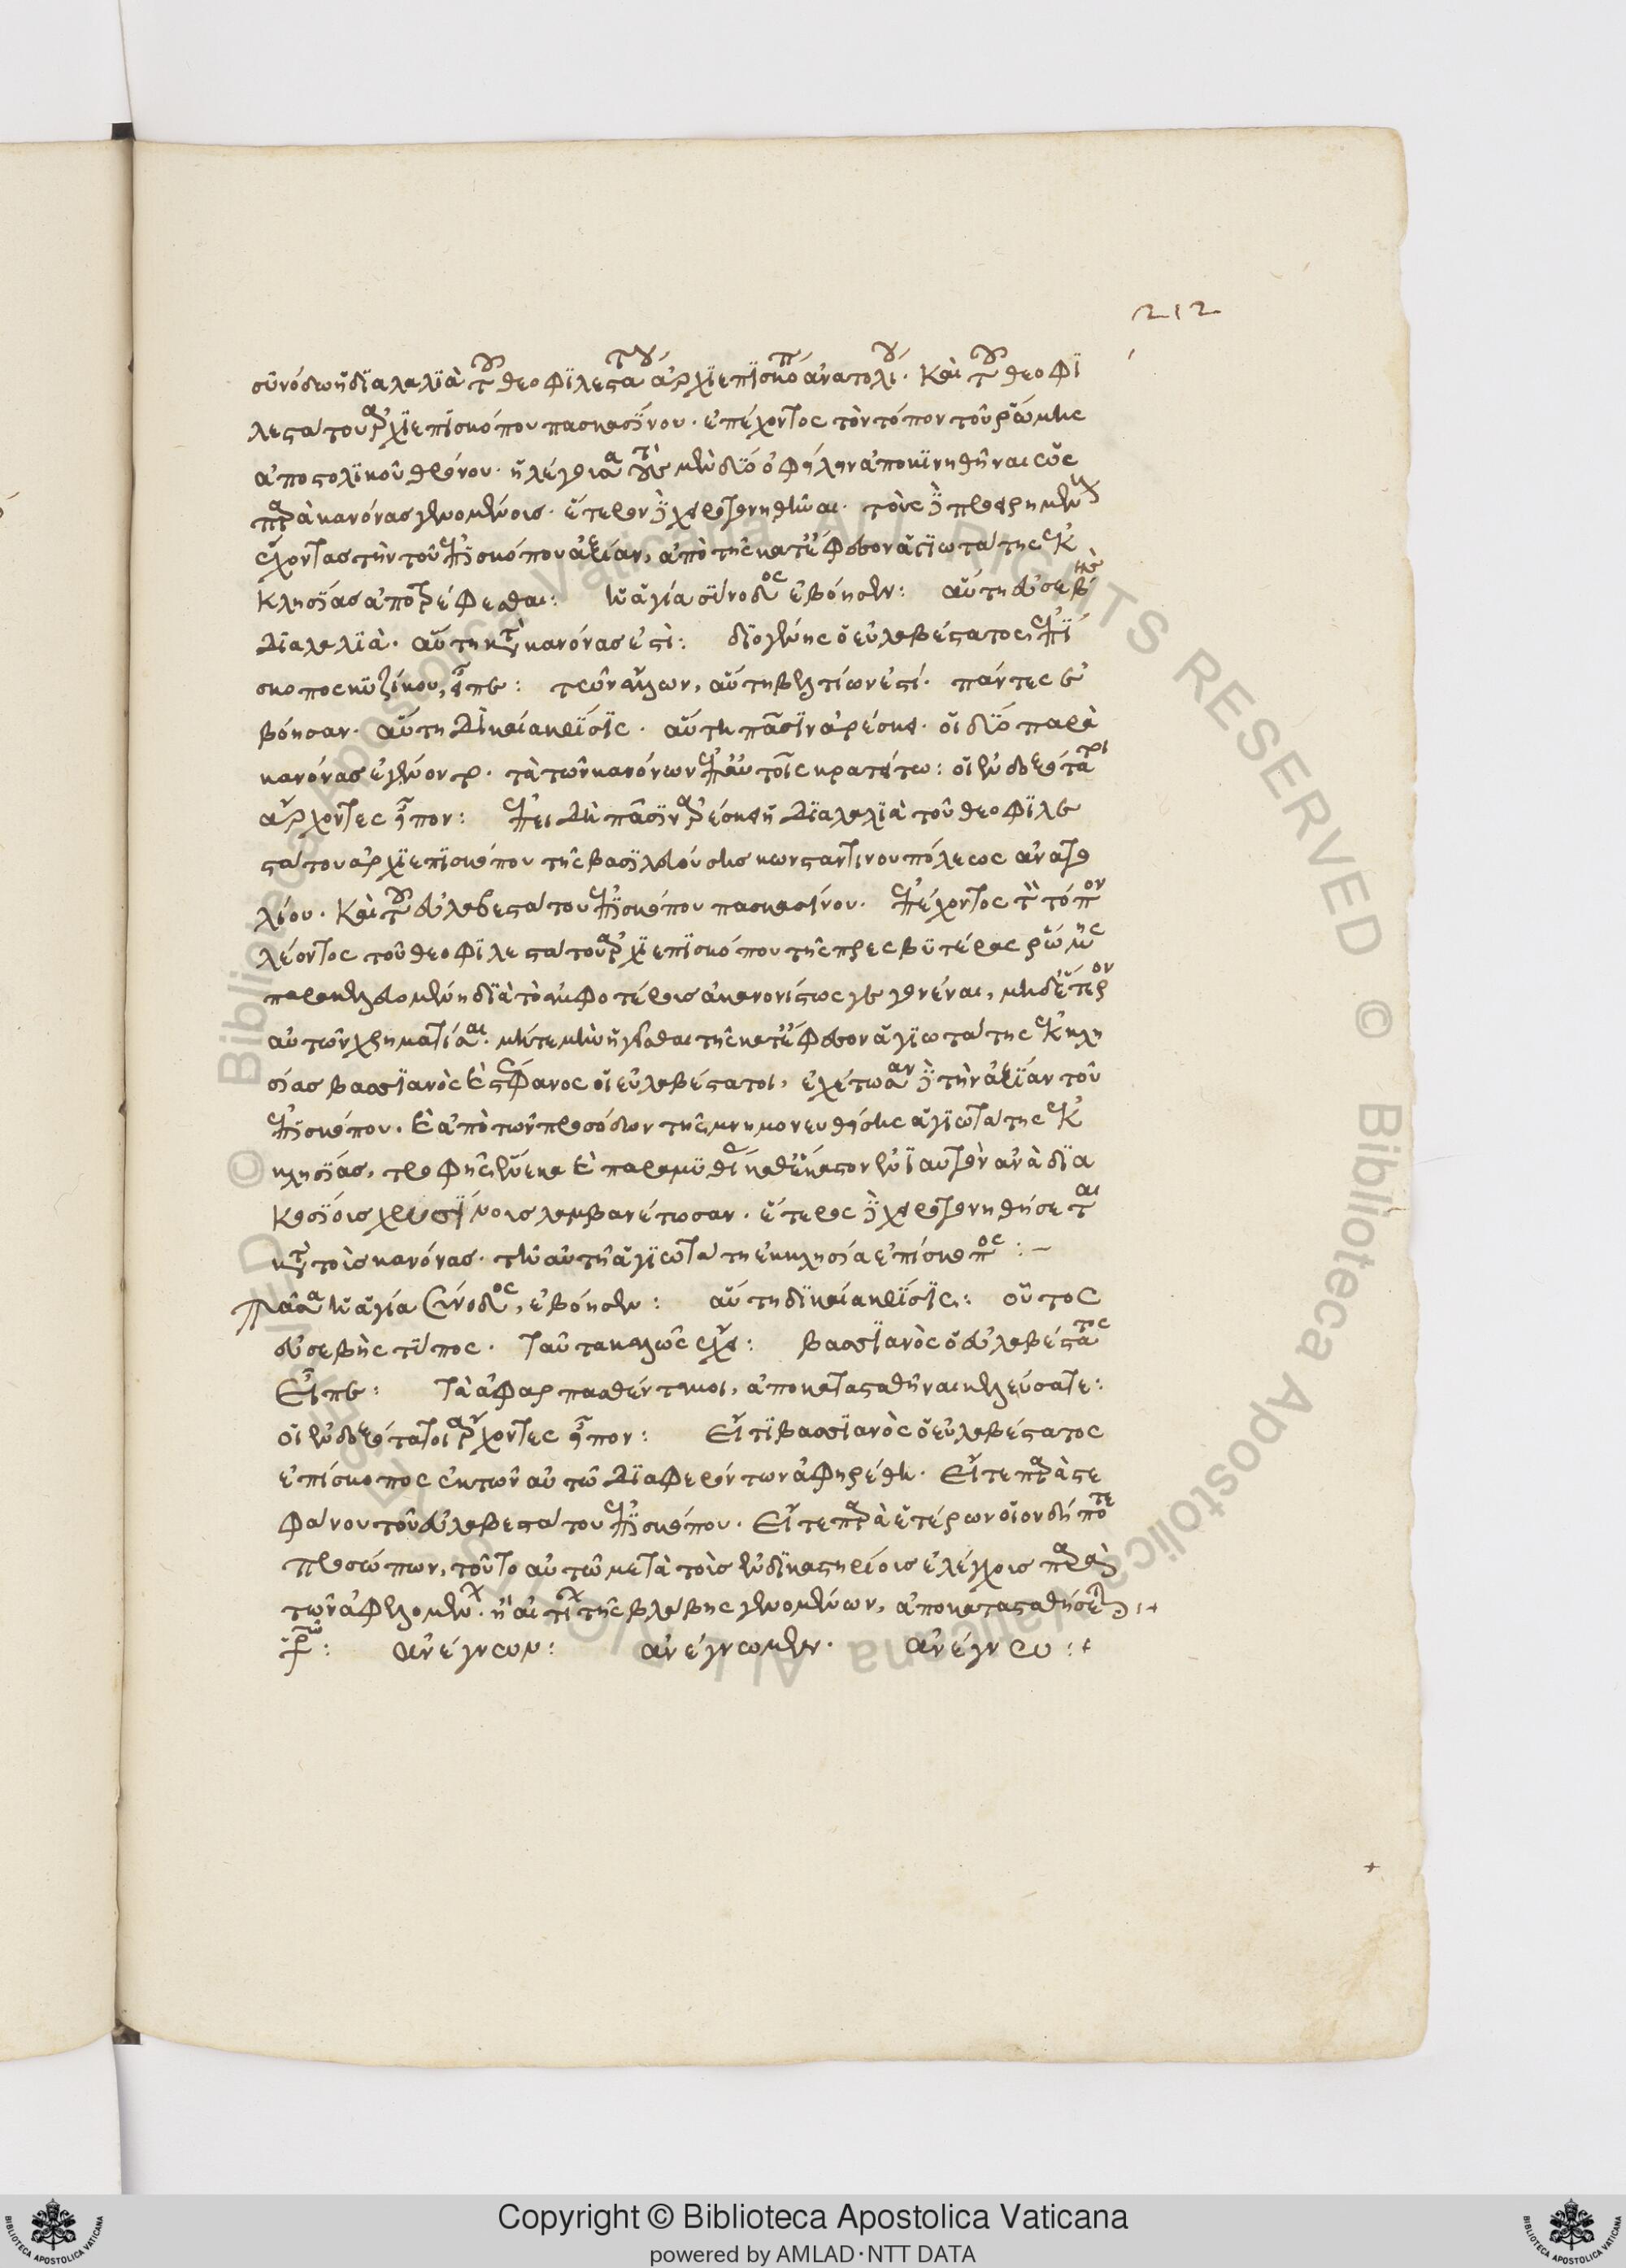 212
συνόδω ἡ διαλαλιὰ τοῦ θεοφιλεστάτου ἀρχιεπισκόπου ἀνατολίου. Καὶ τοῦ θεοφι
λεστάτου ἀρχιεπισκόπου πασκασίνου. ἐπέχοντος τὸν τόπον τοῦ ῥώμης
ἀποστολικοῦ θρόνου.
παρὰ κανόνας γενομένους. ἕτερον δὲ χειροτονηθῆναι. τοὺς δὲ προειρημένους
ἔχοντας τὴν τοῦ ἐπισκόπου ἀξίαν, ἀπὸ τῆς κατ' ἔφεσον ἁγιωτάτης ἐκ
κλησίας ἀποτρέφεσθαι: ἡ ἁγία σύνοδος ἐβόησεν: αὕτη εὐσεβὴς
διαλαλιὰ. αὕτη κατὰ κανόνας ἐστὶ: διογένης ὁ εὐλαβέστατος ἐπί
σκοπος κυζίκου, εἶπε: τῶν ἄλλων, αὕτη βελτίων ἐστί. πάντες ἐ
βόησαν. αὕτη δικαία κρίσις. αὕτη πᾶσιν ἀρέσκει. οἱ δύο παρὰ
κανόνας ἐγένοντο. τὰ τῶν κανόνων ἐπ' αὐτοῖς κρατείτω: οἱ ἐνδοξότατοι
ἄρχοντες εἶπον: ἐπειδὴ πᾶσιν ἀρέσκει ἡ διαλαλιὰ τοῦ θεοφιλε
στάτου ἀρχιεπισκόπου τῆς βασιλευούσης κωνσταντινουπόλεως ἀνατο
λίου. Καὶ τοῦ εὐλαβεστάτου ἐπισκόπου πασκασίνου. ἐπέχοντος τὸν τόπον
λέοντος τοῦ θεοφιλεστάτου ἀρχιεπισκόπου τῆς πρεσβυτέρας ῥώμης
παρακελευομένη διὰ τὸ ἀμφοτέρους ἀκανονίστως γεγονέναι, μηδέτερον
αὐτῶν χρηματίσαι. μήτε μὴν ἡγεῖσθαι τῆς κατ' ἔφεσον ἁγιωτάτης ἐκκλη
σίας βασιανὸς καὶ στέφανος οἱ εὐλαβέστατοι, ἐχέτωσαν δὲ τὴν ἀξίαν τοῦ
ἐπισκόπου. καὶ ἀπὸ τῶν προσόδων τῆς μνημονευθείσης ἁγιωτάτης ἐκ
κλησίας, τροφῆς ἕνεκα καὶ παραμυθίας καθ' ἕκαστον ἐνιαυτὸν ἀνὰ δια
κοσίους χρυσίνους λαμβανέτωσαν. ἕτερος δὲ χειροτονηθήσεται
κατὰ τοὺς κανόνας. τῆ αὐτῆ ἁγιωτάτη ἐκκλησία ἐπίσκοπος :–
Πᾶσα ἡ ἁγία σύνοδος, ἐβόησεν: αὕτη δικαία κρίσις: οὗτος
εὐσεβὴς τύπος. ταῦτα καλῶς ἔχει: βασιανὸς ὁ εὐλαβέστατος
Εἶπε: τὰ ἀφαρπασθέντα μοι, ἀποκατασταθῆναι κελεύσατε:
οἱ ἐνδοξότατοι ἄρχοντες εἶπον: Εἴ τι βασιανὸς ὁ εὐλαβέστατος
ἐπίσκοπος ἐκ τῶν αὐτῶ διαφερόντων ἀφηρέθη. Εἴτε παρὰ στε
φάνου τοῦ εὐλαβεστάτου ἐπισκόπου. Εἴτε παρὰ ἑτέρων οἱονδήποτε
προσώπων, τοῦτο αὐτῶ μετὰ τοὺς ἐν δικαστηρίοις ἐλέγχους παρὰ
τῶν ἀφελομένων. ἢ αἰτίων τῆς βλάβης γενομένων, ἀποκατασταθήσεται :+
ἀνέγνων: ἀνέγνωμεν. ἀνέγνω :+
Copyright © Biblioteca Apostolica Vaticana
powered by AMLAD·NTT DATA